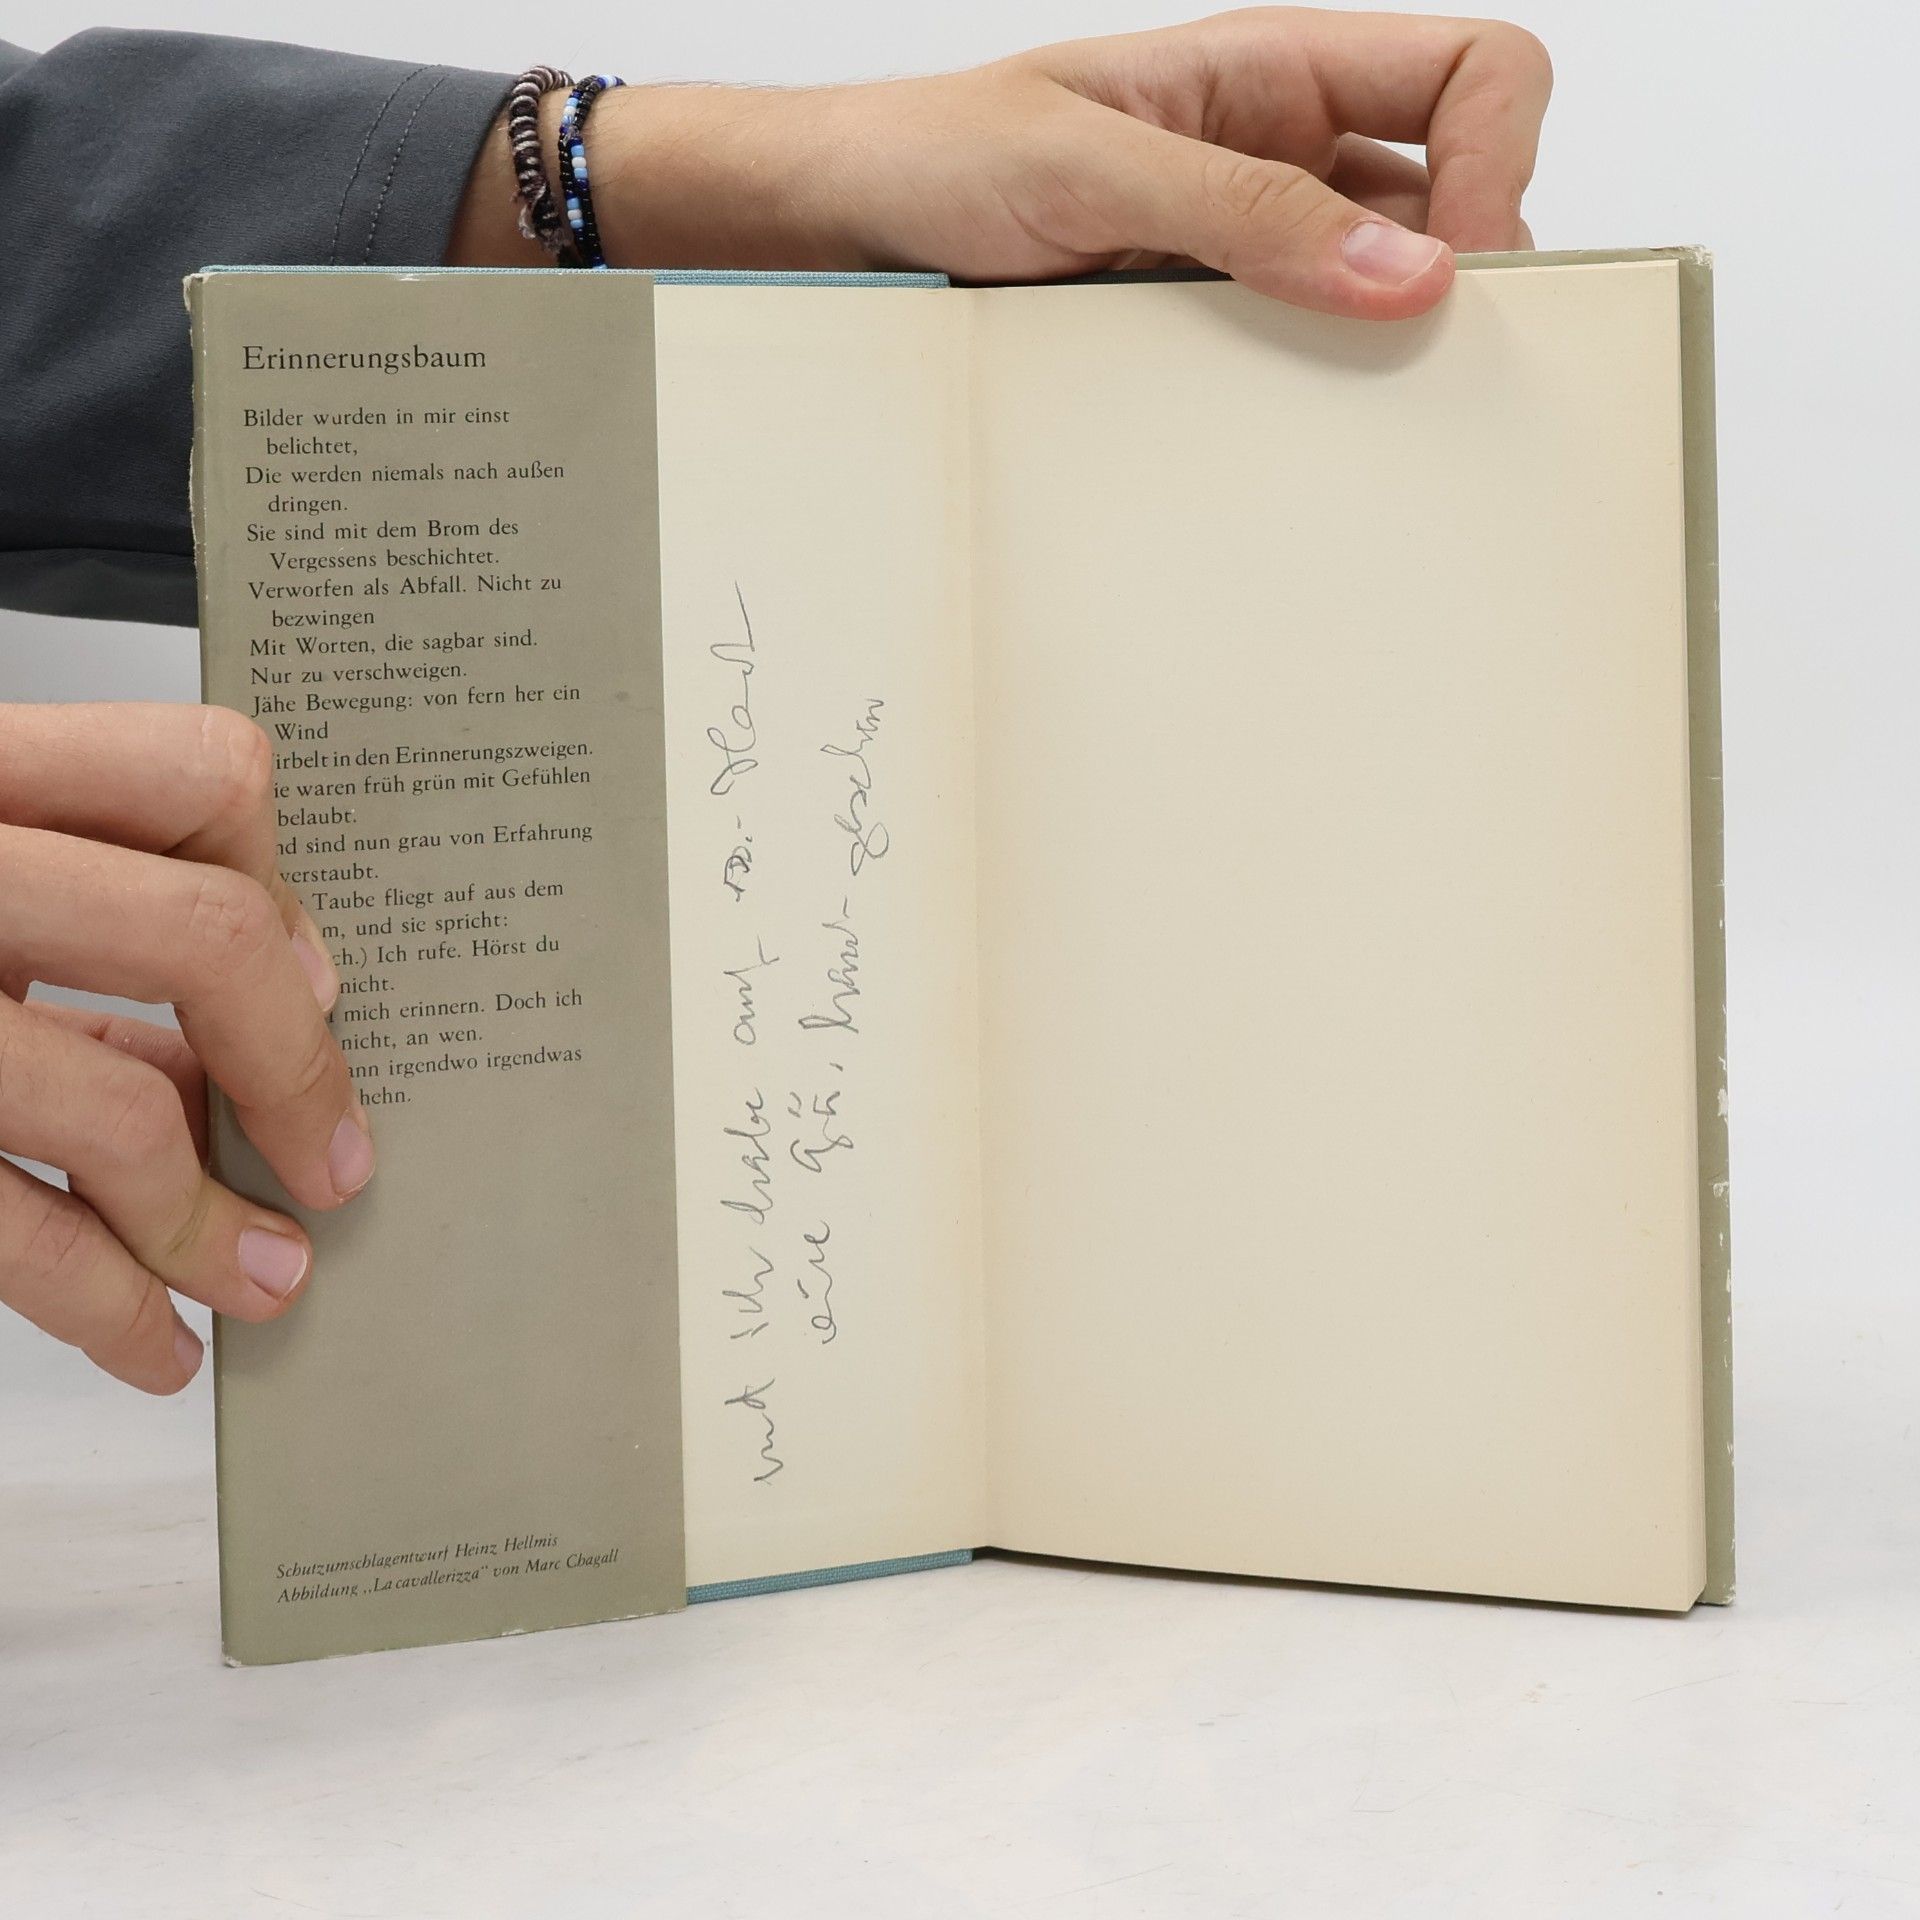 Erinnerungsbaum
Bilder wurden in mir einst
belichtet,
Die werden niemals nach außen
dringen.
Sie sind mit dem Brom des
Vergessens beschichtet.
Verworfen als Abfall. Nicht zu
bezwingen
Mit Worten, die sagbar sind.
Nur zu verschweigen.
Jähe Bewegung: von fern her ein
Wind
irbelt in den Erinnerungszweigen.
ie waren früh grün mit Gefühlen
belaubt.
nd sind nun grau von Erfahrung
verstaubt.
Taube fliegt auf aus dem
m, und sie spricht:
ch.) Ich rufe. Hörst du
nicht.
mich erinnern. Doch ich
nicht, an wen.
ann irgendwo irgendwas
hehn.
Schutzumschlagentwurf Heinz Hellmis
Abbildung „La cavallerizza" von Marc Chagall
und ihr
eine